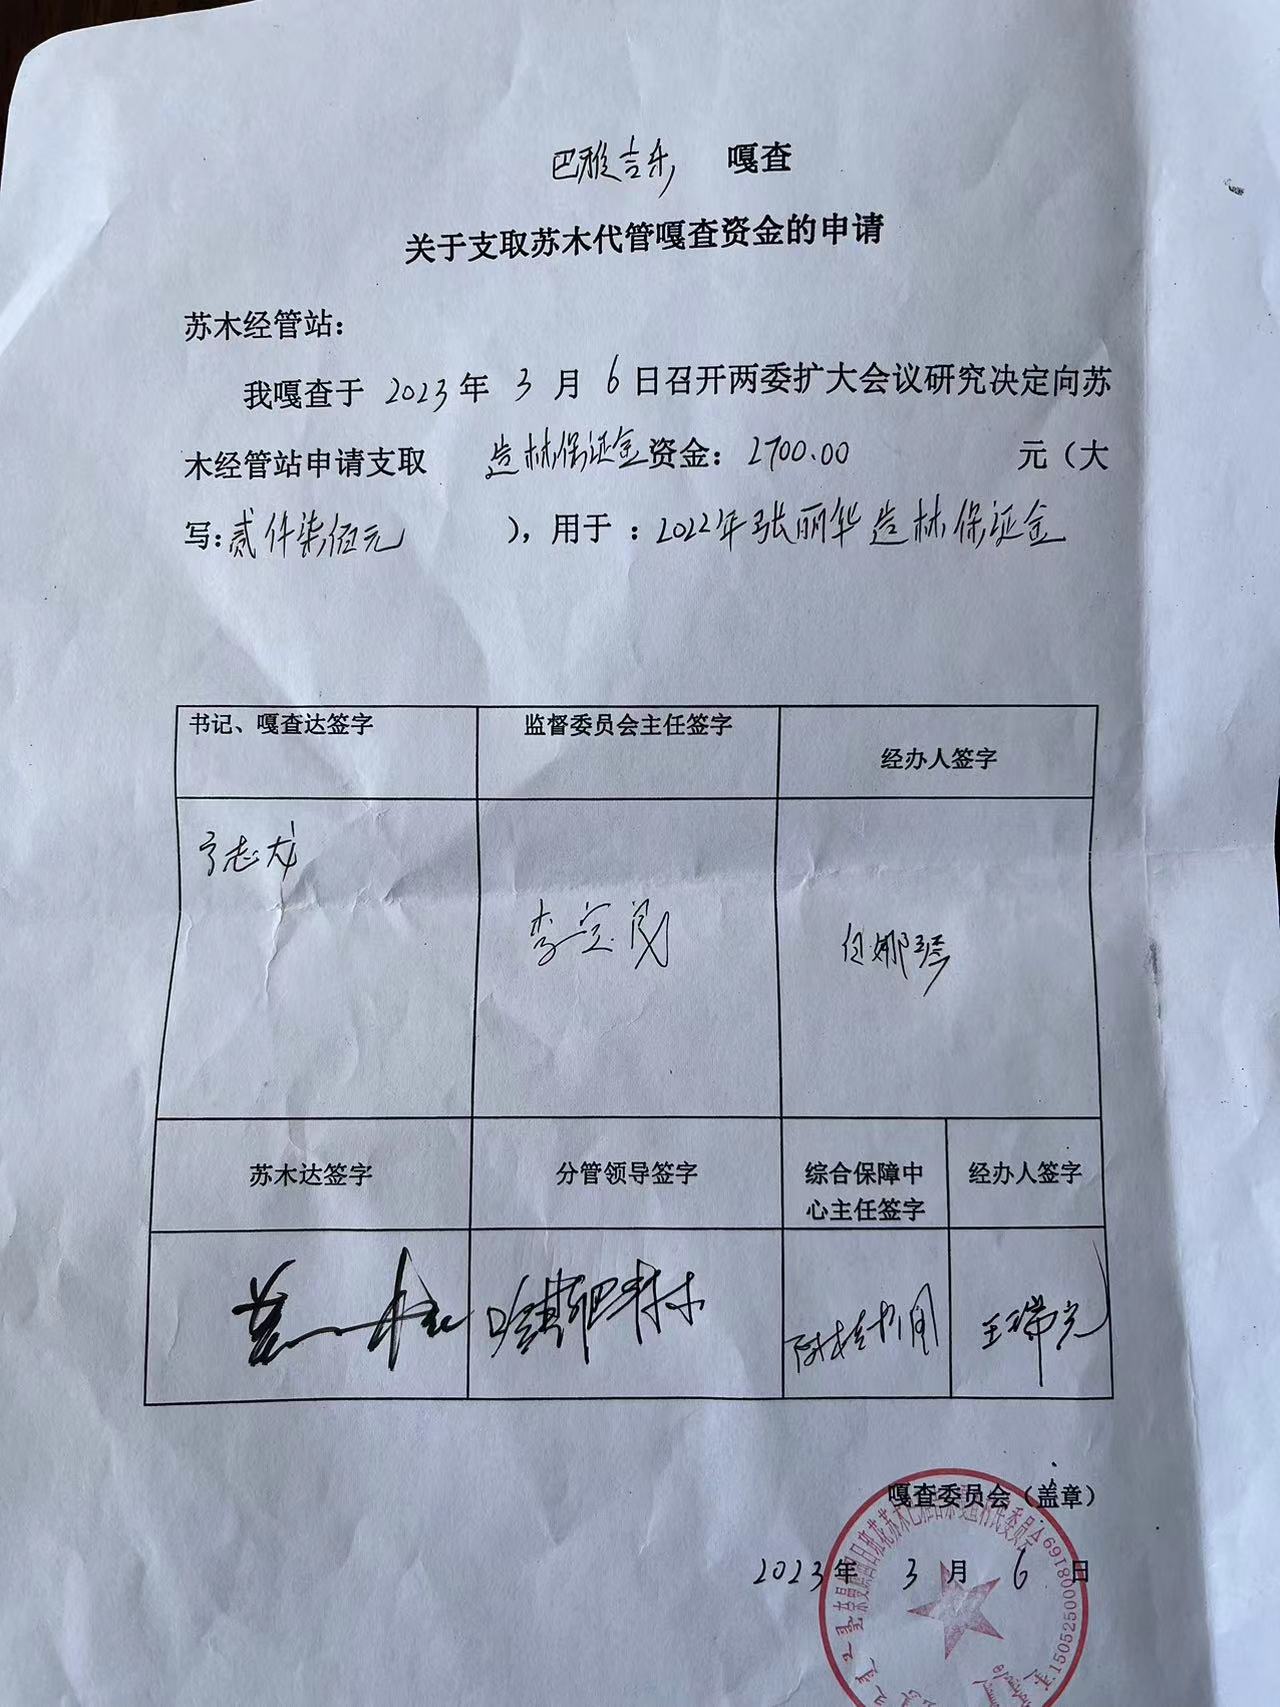 巴雅吉乐 嘎查
关于支取苏木代管嘎查资金的申请
苏木经管站：
我嘎查于 2023 年 3 月 6 日召开两委扩大会议研究决定向苏
木经管站申请支取 造林保证金资金：2700.00 元（大
写：贰仟柒佰元 ），用于：2022年张丽华造林保证金
书记、嘎查达签字 监督委员会主任签字 经办人签字
志龙 李宝 娜琴
苏木达签字 分管领导签字 综合保障中心主任签字 经办人签字
哈斯巴特尔 王瑞
嘎查委员会（盖章）
2023 年 3 月 6 日